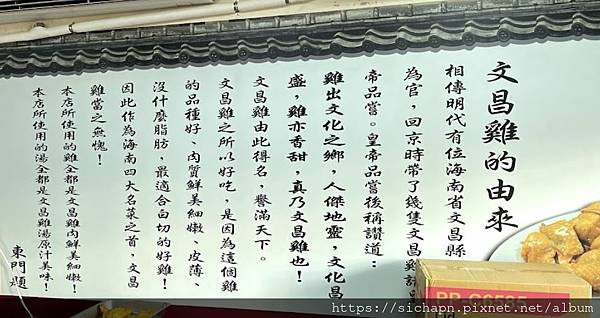 文昌雞的由來
相傳明代有位海南省文昌縣
為官，回京時帶了幾隻文昌雞請
帝品嘗。皇帝品嘗後稱讚道：
雞出文化之鄉，人傑地靈，文化昌
盛，雞亦香甜，真乃文昌雞也！
文昌雞由此得名，譽滿天下。
文昌雞之所以好吃，是因為這個雞
的品種好、肉質鮮美細嫩、皮薄、
沒什麼脂肪，最適合白切的好雞！
因此作為海南四大名菜之首，文昌
雞當之無愧！
本店所使用的雞全都是文昌雞肉鮮美細嫩！
本店所使用的湯全都是文昌雞湯原汁美味！
東門題
PP-C6585
https://sichapn.pixnet.net/album